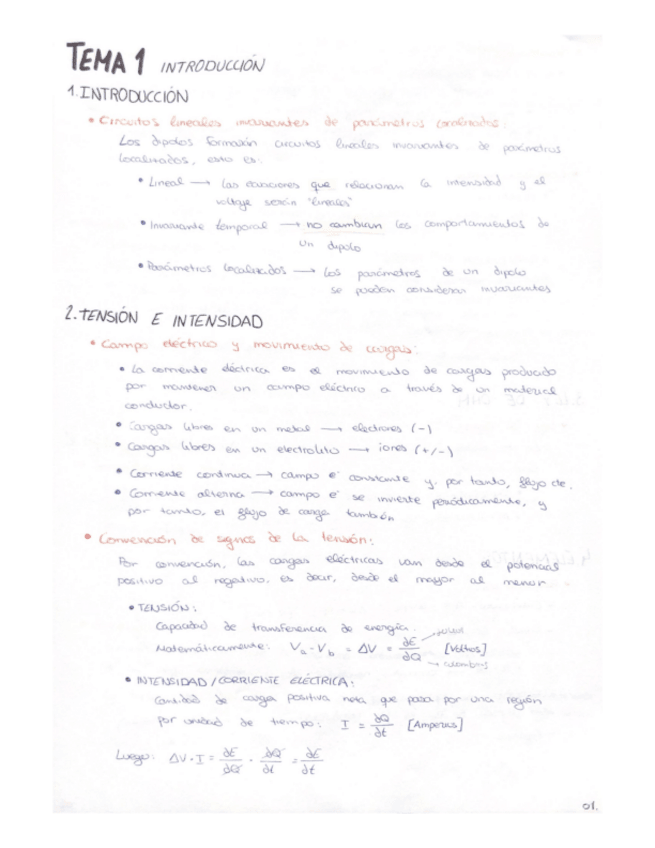 TEMA 1 INTRODUCCIÓN
1. INTRODUCCIÓN
• Circuitos lineales invariantes de parámetros coordenados:
Los dipolos formarán circuitos lineales invariantes de parámetros
localizados, esto es:
• Lineal → Las ecuaciones que relacionan la intensidad y el
voltaje serán "lineales"
• Invariante temporal → no cambian los comportamientos de
un dipolo
• Parámetros localizados → Los parámetros de un dipolo
se pueden considerar invariantes
2. TENSIÓN E INTENSIDAD
• Campo eléctrico y movimiento de cargas:
• La corriente eléctrica es el movimiento de cargas producido
por mantener un campo eléctrico a través de un material
conductor.
• Cargas libres en un metal → electrones (-)
• Cargas libres en un electrolito → iones (+/-)
• Corriente continua → campo e⁻ constante y, por tanto, flujo de.
• Corriente alterna → campo e⁻ se invierte periódicamente, y
por tanto, el flujo de carga también
• Convención de signos de la tensión:
Por convención, las cargas eléctricas van desde el potencial
positivo al negativo, es decir, desde el mayor al menor
• TENSIÓN:
Capacidad de transferencia de energía.
Matemáticamente: Va - Vb = ΔV = ∂E/∂Q [Voltios]
culombios
• INTENSIDAD / CORRIENTE ELÉCTRICA:
Cantidad de carga positiva neta que pasa por una región
por unidad de tiempo: I = ∂Q/∂t [Amperios]
Luego: ΔV · I = ∂E/∂Q · ∂Q/∂t = ∂E/∂t
01.